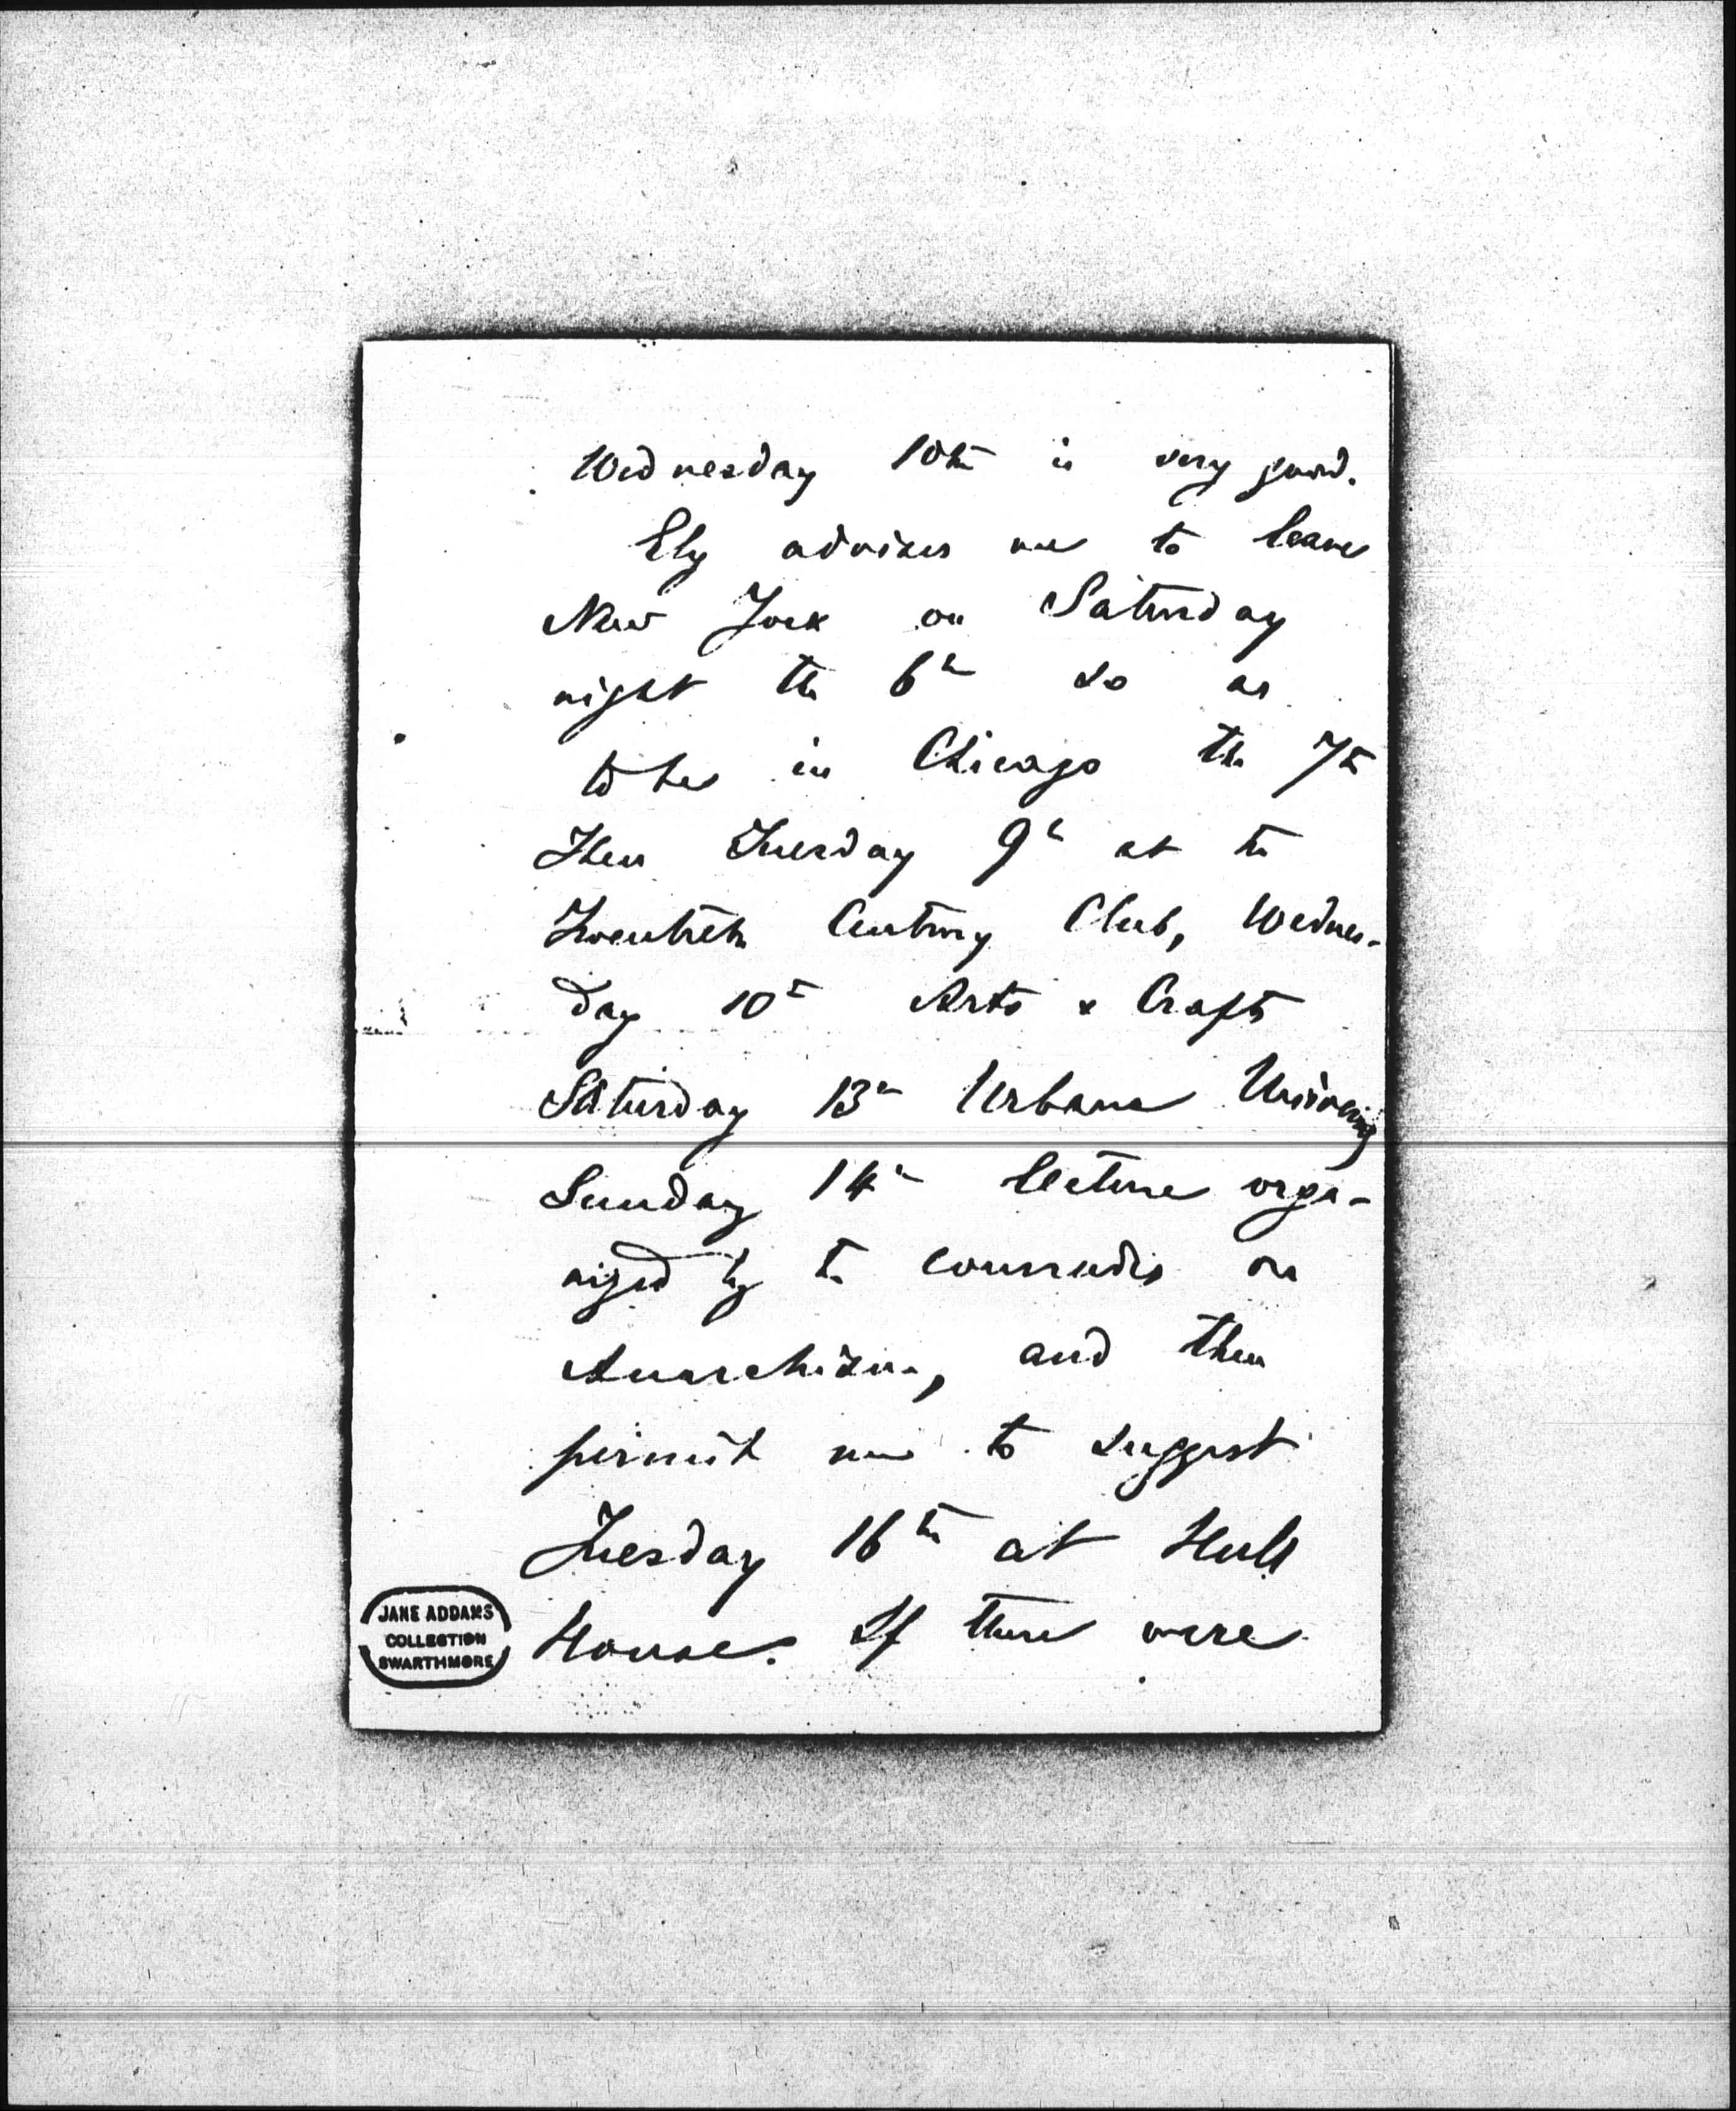 Wednesday 10th is very good.
Ely advises me to leave
New York on Saturday
night the 6th so as
to be in Chicago the 7th
Then Tuesday 9th at the
Twentieth Century Club, Wednes-
day 10th Arts & Crafts
Saturday 13th Urbana University
Sunday 14th lecture orga-
nized by the comrades on
Anarchism, and then
permit me to suggest
Tuesday 16th at Hull
House. If there were
JANE ADDAMS
COLLECTION
SWARTHMORE